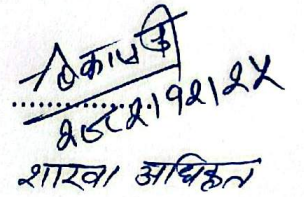 २०८२।१२।२५
शाखा अधिकृत